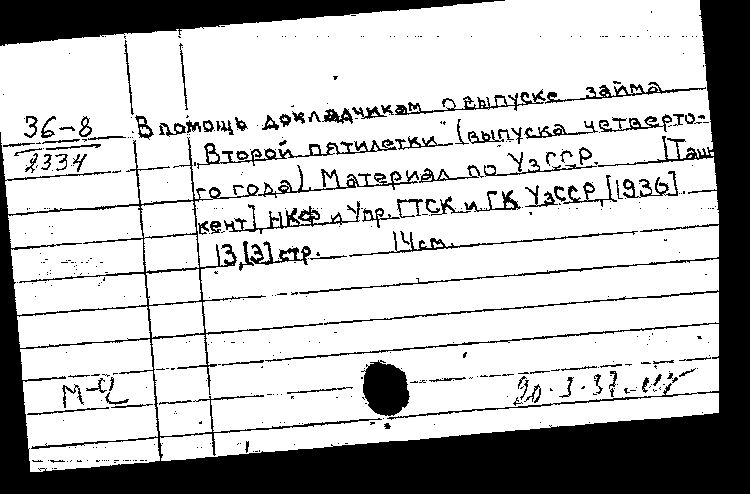 36-8
2334
В помощь докладчикам о выпуске займа
„Второй пятилетки" (выпуска четверто-
го года). Материал по УзССР. [Таш-
кент], НКФ и Упр. ГТСК и ГК УзССР, [1936].
13, [3] стр. 14 см.
20.3.37